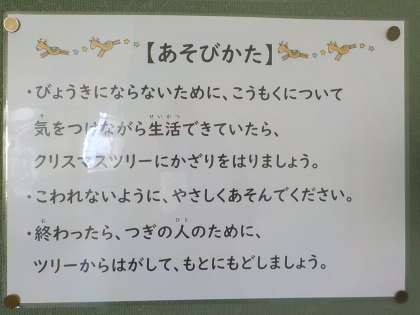 【あそびかた】
・びょうきにならないために、こうもくについて
気をつけながら生活できていたら、
クリスマスツリーにかざりをはりましょう。
・こわれないように、やさしくあそんでください。
・終わったら、つぎの人のために、
ツリーからはがして、もとにもどしましょう。